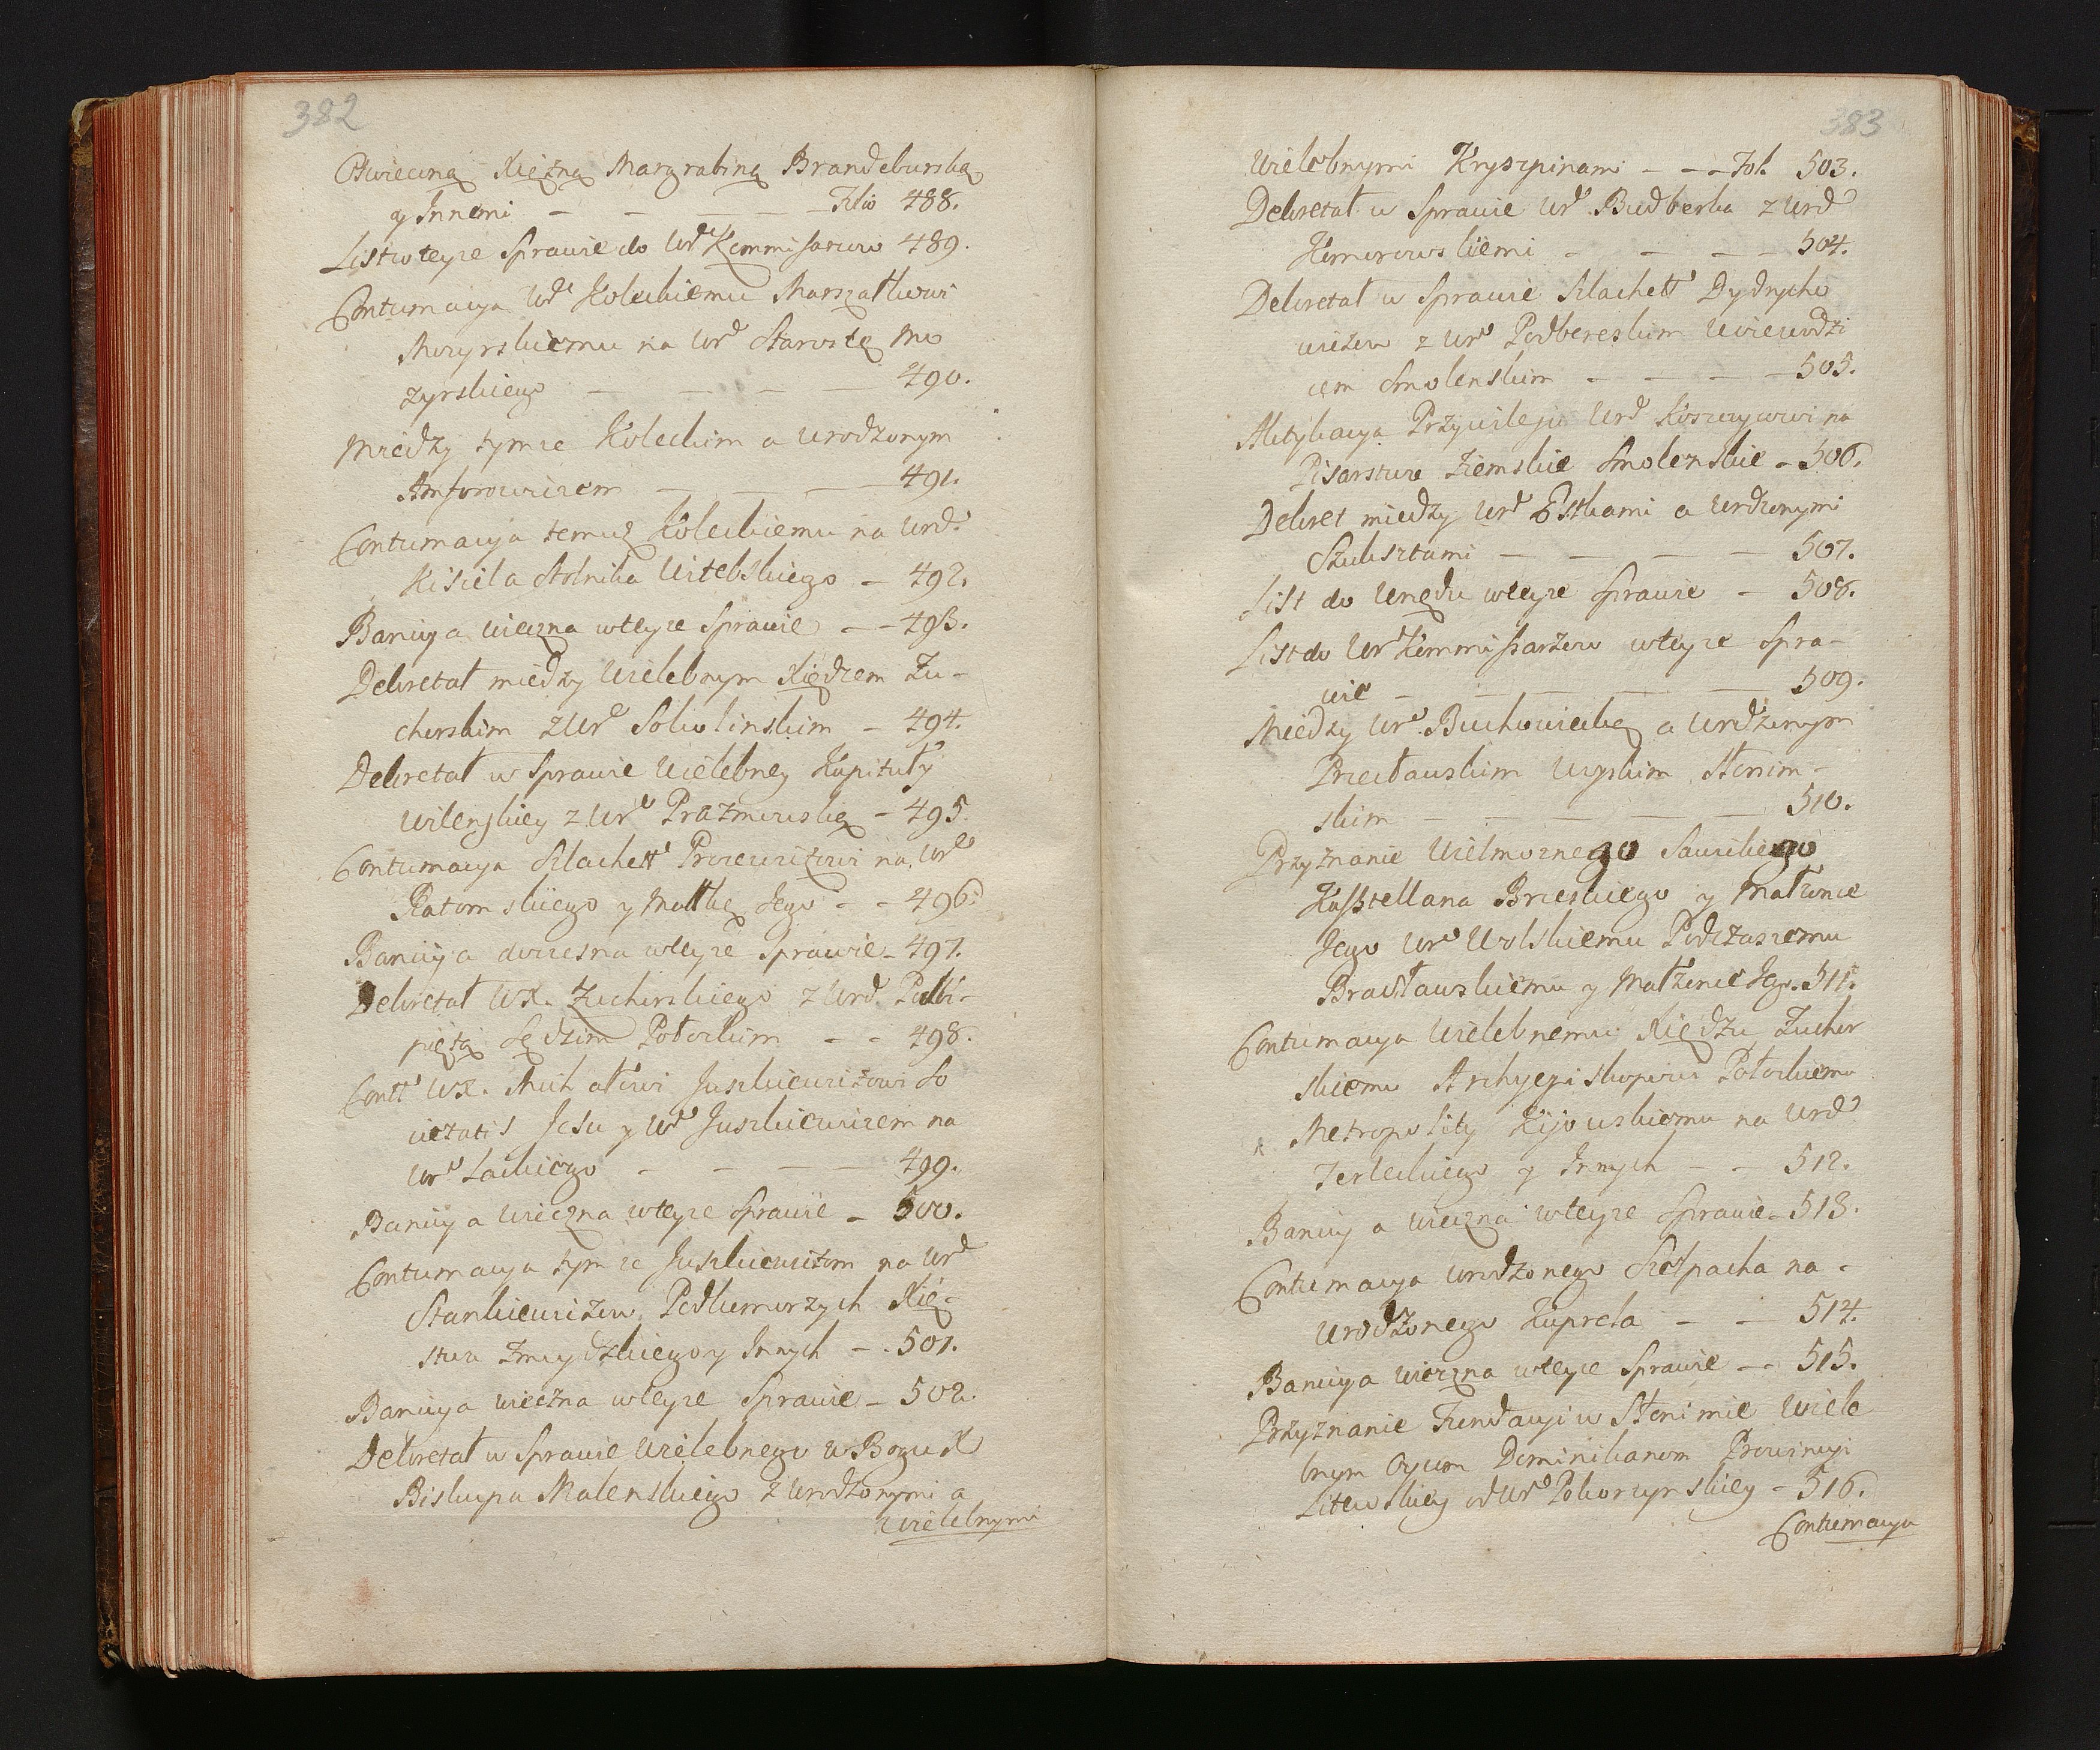 382
Oświeconą Xiężną Margrabiną Brandeburską
y Innemi — — — — Folio 488.
List w teyze Sprawie do Urd Kommissarzow 489.
Contumacya Urd Koleckiemu Marszałkowi
Mozyrskiemu na Urd Starostę Mo
zyrskiego — — — — 490.
Miedzy tymze Koleckim a Urodzonym
Amforowiczem — — — 491.
Contumacya temuz Koleckiemu na Urd
Kisiela Stolnika Witebskiego — 492.
Banicya wieczna w teyze Sprawie — — 493.
Dekretał miedzy Wielebnym Xiędzem Zo-
chorskim z Urd Sokolinskim — 494.
Dekretał w Sprawie Wielebney Kapituły
Wilenskiey z Urd Prażmowską — 495.
Contumacya Szlachett Procewiczowi na Urd
Ratomskiego y Matkę Jego — — 496.
Baniya doczesna w teyze Sprawie — 497.
Dekretał WX. Zuchorskiego z Urd Podbi-
piętą Sędzim Połockim — — 498.
Contt WX. Michałowi Juszkiewiczowi So
cietatis Jesu y Urd Juszkiewiczem na
Urd Łackiego — — — — 499.
Baniya wieczna w teyze Sprawie — 500.
Contumacya tymze Juszkiewiczom na Urd
Stankiewiczow Podkomorzych Xię-
stwa Zmuydzkiego y Innych — . 501.
Baniya wieczna w teyze Sprawie — 502.
Dekretał w Sprawie Wielebnego w Bogu X
Biskupa Malenskiego z Urodzonymi a
Wielebnymi
383
Wielebnymi Kryszpinami — — — Fol. 503.
Dekretał w Sprawie Urd Budberka z Urd
Komorowskiemi — — — — 504.
Dekretał w Sprawie Szlachett Dydrycho
wiczow z Urd Podbereskim Woiewodzi
cem Smolenskim — — — — 505.
Aktykacya Przywileju Urd Koszczycowi na
Pisarstwo Ziemskie Smolenskie — 506.
Dekret miedzy Urd Estkami a Urdzonymi
Szuksztami — — — — 507.
List do Urzędu w teyze Sprawie — 508.
List do Urd Kommissarzow w teyze Spra-
wie — — — — — 509.
Miedzy Urd Buchowiecką a Urdzonym
Przecławskim Woyskim Słonim-
skim — — — — — 510.
Przyznanie Wielmoznego Sawickiego
Kasztellana Brzeskiego y Małzonce
Jego Urd Wolskiemu Podczaszemu
Bracławskiemu y Małzonce Jego . 511.
Contumacya Wielebnemu Xiędzu Zuchor
skiemu Archyepiskopowi Połockiemu
Metropolity Kijowskiemu na Urd
Terleckiego y Innych — — 512.
Baniya wieczna w teyze Sprawie — 513.
Contumacya Urodzonego Szołpacha na —
Urodzonego Zuprela — — 514.
Baniya wieczna w teyze Sprawie — . 515.
Przyznanie Fundacyi w Słonimie Wiele
bnym Oycom Dominikanom Prowincyi
Litewskiey od Urd Połkorzynskiey — 516.
Contumacya